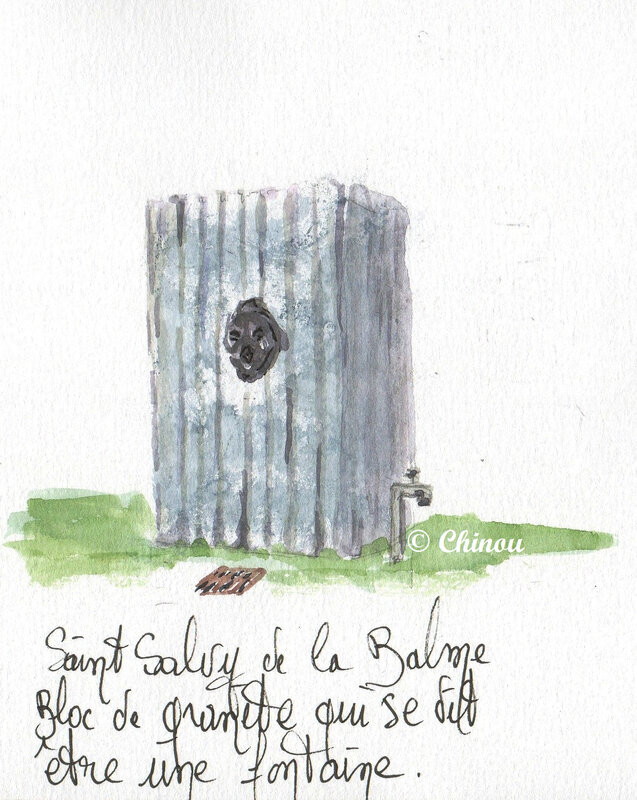 © Chinou
Saint Salvy de la Balme
Bloc de granite qui se dit
être une fontaine.